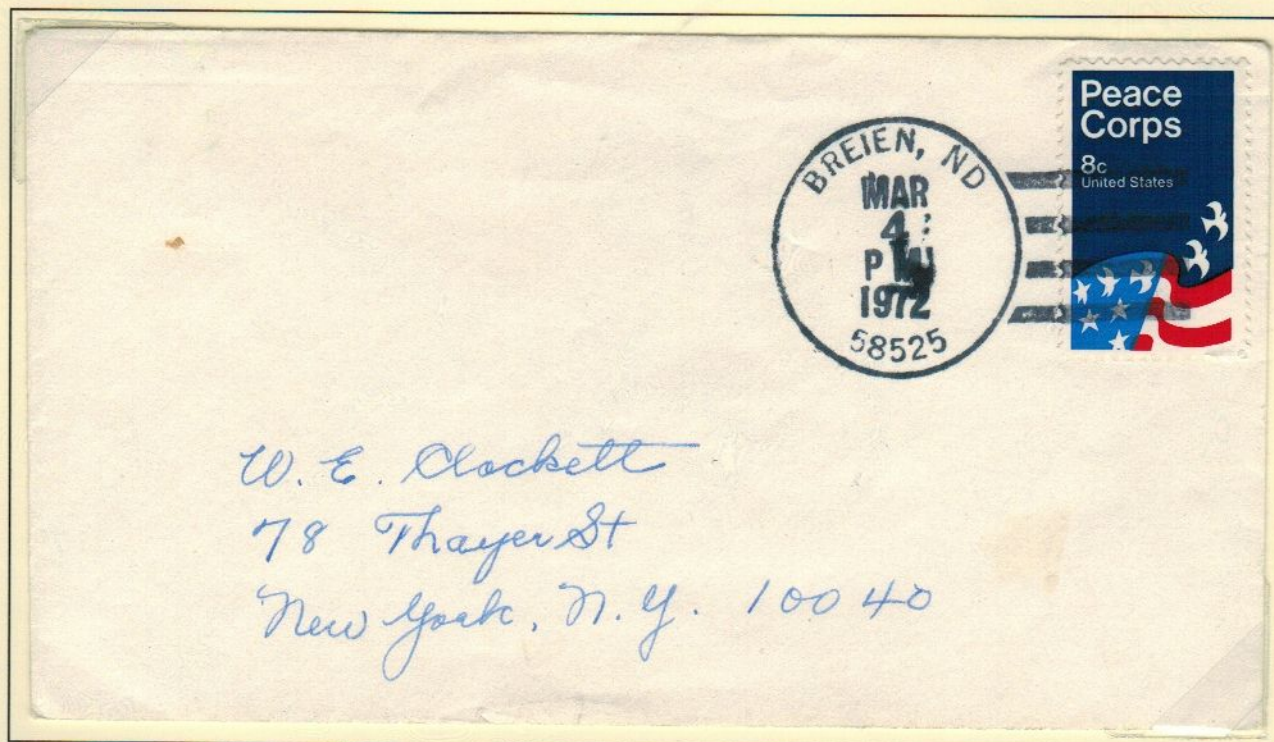 Peace
Corps
8c
United States
BREIEN, ND
MAR
4
PM
1972
58525
W. E. Clockett
78 Thayer St
New York, N.Y. 10040